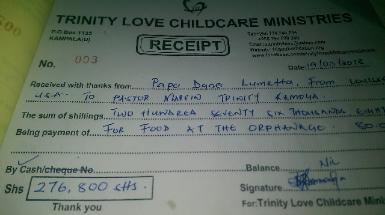 TRINITY LOVE CHILDCARE MINISTRIES
P.O.Box 1133
KAMPALA(U)
RECEIPT
No. 003
Date: 19/03/2018
Received with thanks from Papa Dane Lumetta, From
U.S.A - TO PASTOR MARVIN TRINITY
The sum of shillings TWO HUNDRED SEVENTY SIX THOUSANDS, EIGHT
Being payment of FOR FOOD AT THE ORPHANAGE.
By Cash/cheque No
Balance Nil
Shs 276,800 shs.
Signature
Thank you
For: Trinity Love Childcare Ministries